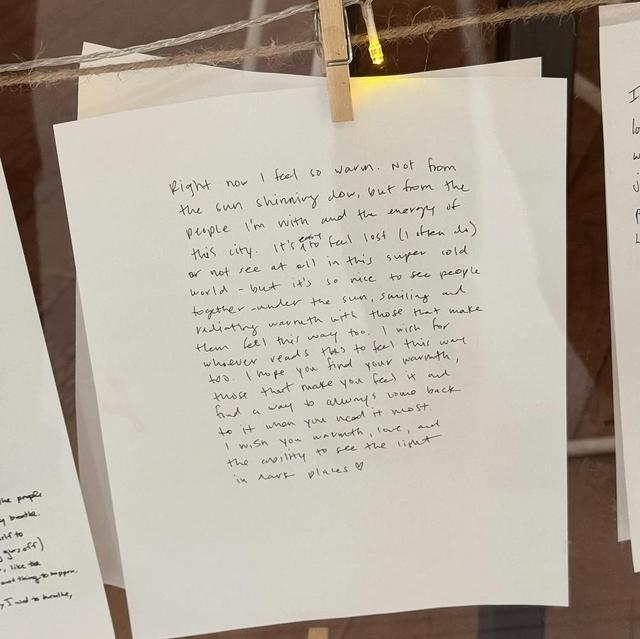 Right now I feel so warm. Not from
the sun shinning dow, but from the
people I'm with and the energy of
this city. It's easy to feel lost (I often do)
or not see at all in this super cold
world - but it's so nice to see people
together - under the sun, smiling and
radiating warmth with those that make
them feel this way too. I wish for
whoever reads this to feel this way
too. I hope you find your warmth,
those that make you feel it and
find a way to always come back
to it when you need it most
I wish you warmth, love, and
the ability to see the light
in dark places ♡
the people
breathe.
to
off)
, like the
thing to happen.
I